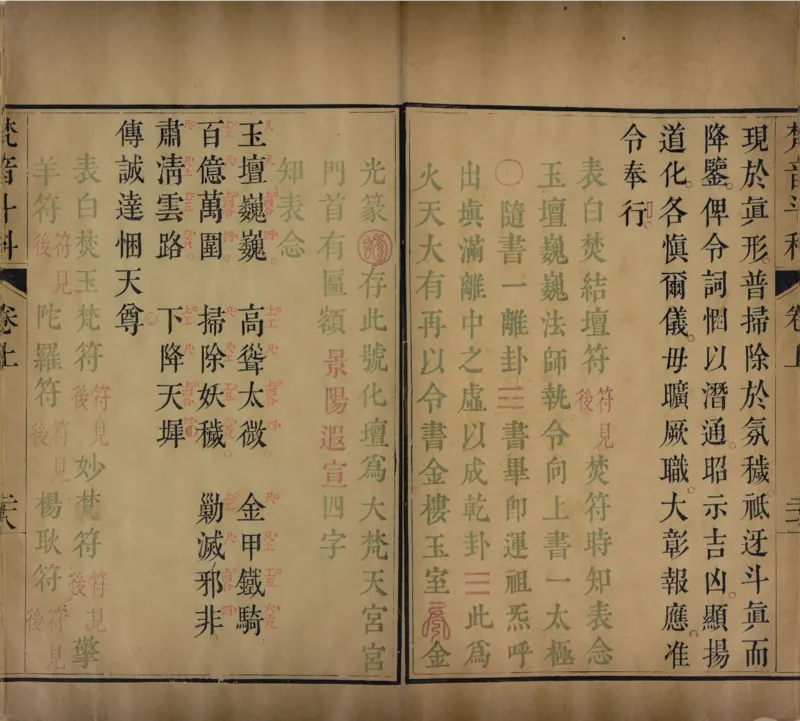 梵音斗科 卷上
現於眞形普掃除於氛穢。祇迓斗眞而
降鑒。俾令詞悃以潛通。昭示吉凶。顯揚
道化。各愼爾儀。毋曠厥職。大彰報應。准
令奉行。
表白焚結壇符符見後焚符時知表念
玉壇巍巍法師執令向上書一太極
〇隨書一離卦☲書畢卽運祖炁呼
出塡滿離中之虛以成乾卦☰此爲
火天大有再以令書金樓玉室金
光篆存此號化壇爲大梵天宮宮
門首有匾額景陽遐宣四字
知表念
玉壇巍巍 高聳太微 金甲鐵騎
百億萬圍 掃除妖穢 勦滅邪非
肅淸雲路 下降天墀
傳誠達悃天尊。
表白焚玉梵符符見後妙梵符符見後擎
羊符符見後陀羅符符見後楊耿符符見後
梵音斗科 卷上